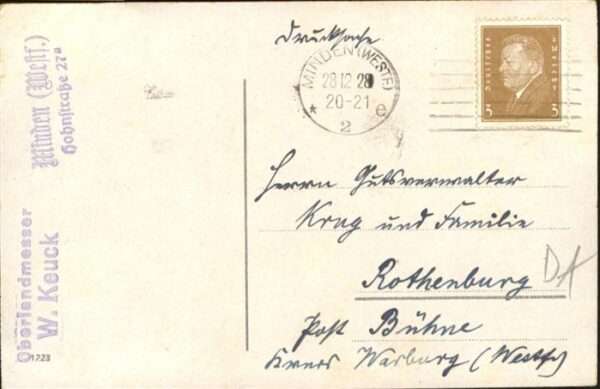 Drucksache
MINDEN (WESTF)
28 12 28
20-21
* 2 e
Deutsches Reich
3 3
Herrn Gutsverwalter
Krug und Familie
Rothenburg
Post Bühne
Kreis Warburg (Westf)
DA
Oberlandmesser
W. Keuck
Minden (Westf.)
Hohnstraße 27a
1223